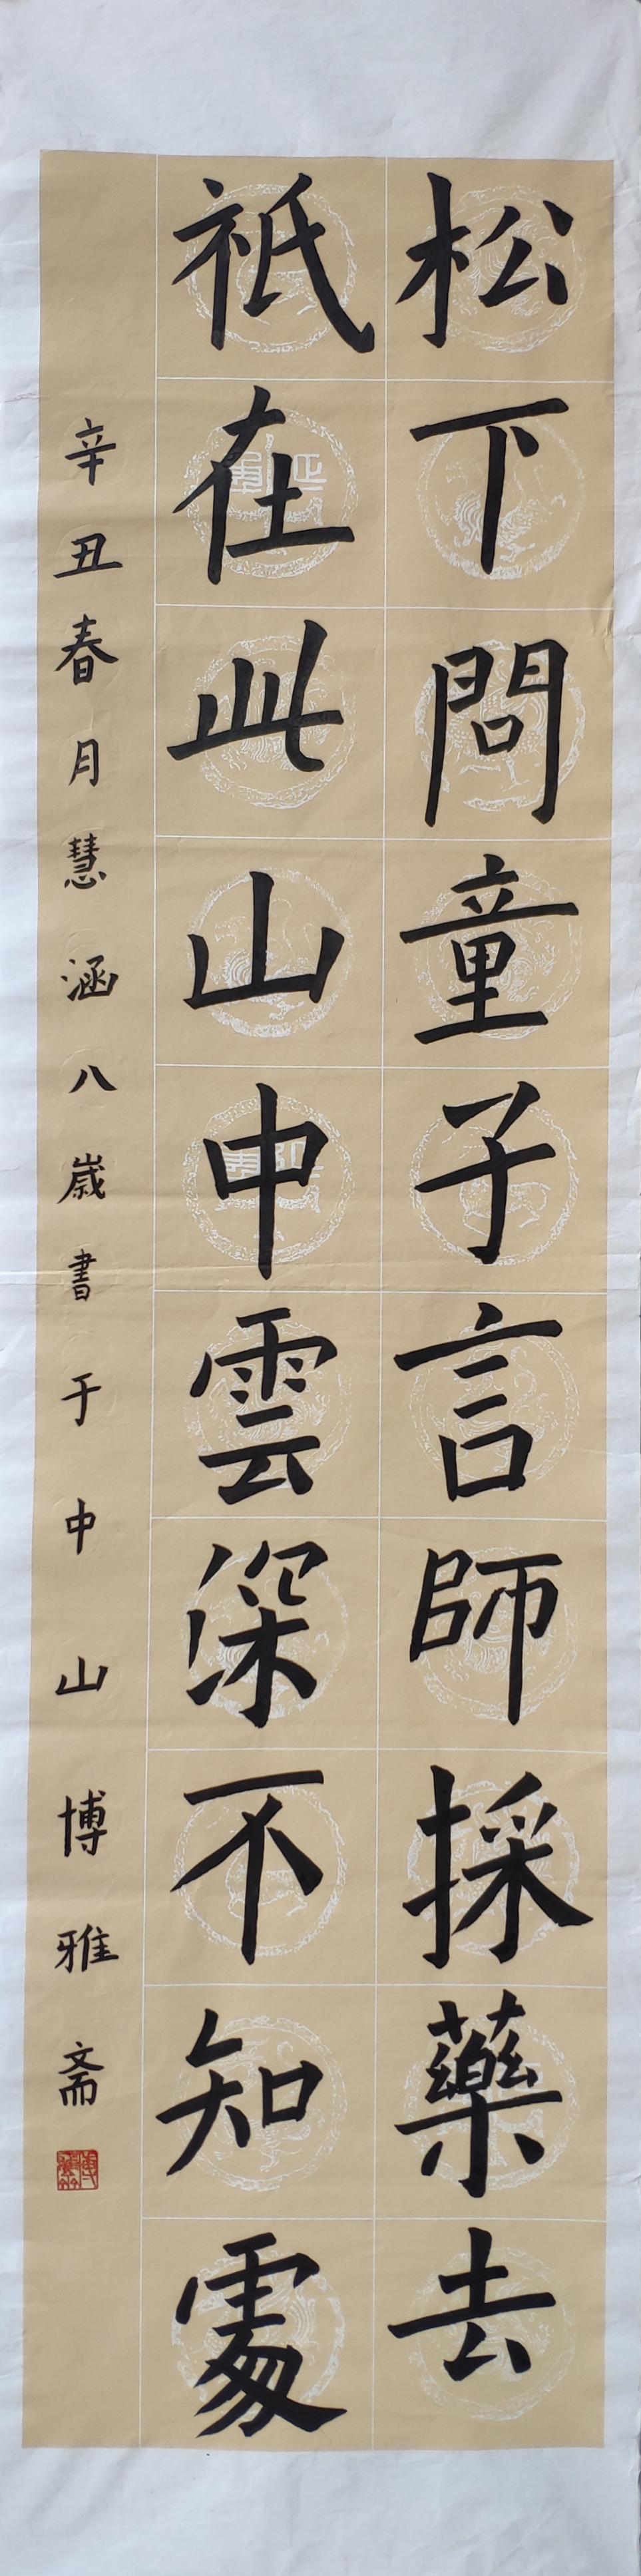 松下問童子言師採藥去
祇在此山中雲深不知處
辛丑春月慧涵八歲書于中山博雅斋